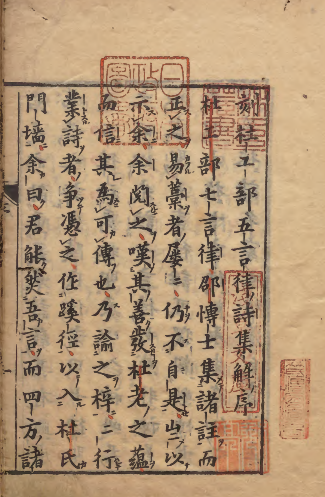 刻杜工部五言律詩集解序
杜工部七言律邵博士集諸註而
正之易藁者屢〻仍不自是出以
示余余閱之嘆其善發杜老之蘊
而信其為可傳也乃諭之梓二行
業詩者争憑之作蹊徑以入杜氏
門墻余曰君能然吾言而四方諸